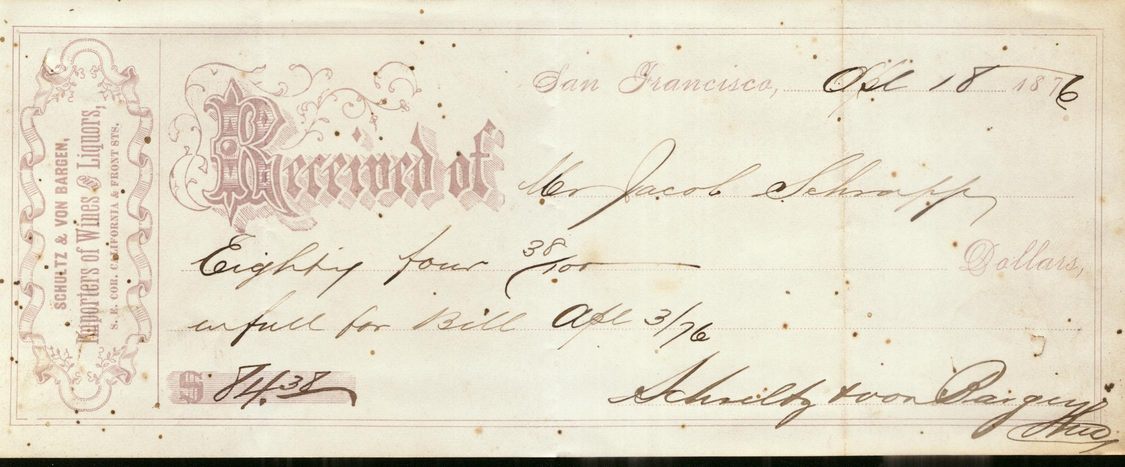 SCHULTZ & VON BARGEN,
Importers of Wines and Liquors,
S. E. COR. CALIFORNIA & FRONT STS.
San Francisco, Apl 18 1876
Received of Mr Jacob Schrapp
Eighty four 38/100 Dollars,
in full for Bill Apl 3/76
$ 84.38
Schultz & von Bargen